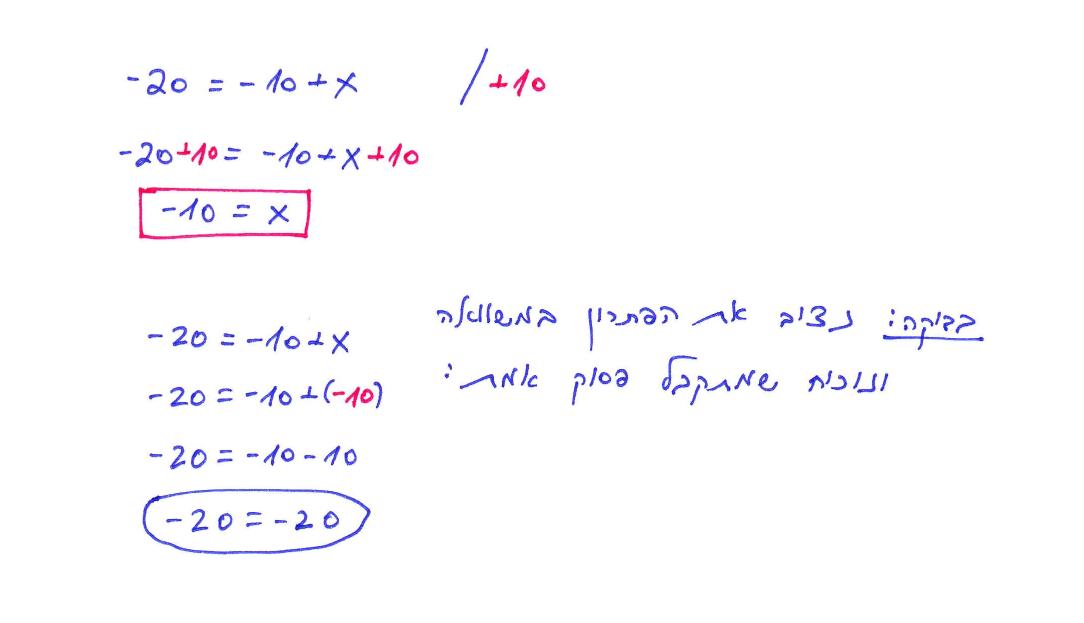 -20 = -10 + x /+10
-20+10 = -10 + x +10
-10 = x
בדיקה: נציב את הפתרון במשוואה
ונוכיח שמתקבל פסוק אמת:
-20 = -10 + x
-20 = -10 + (-10)
-20 = -10 - 10
-20 = -20